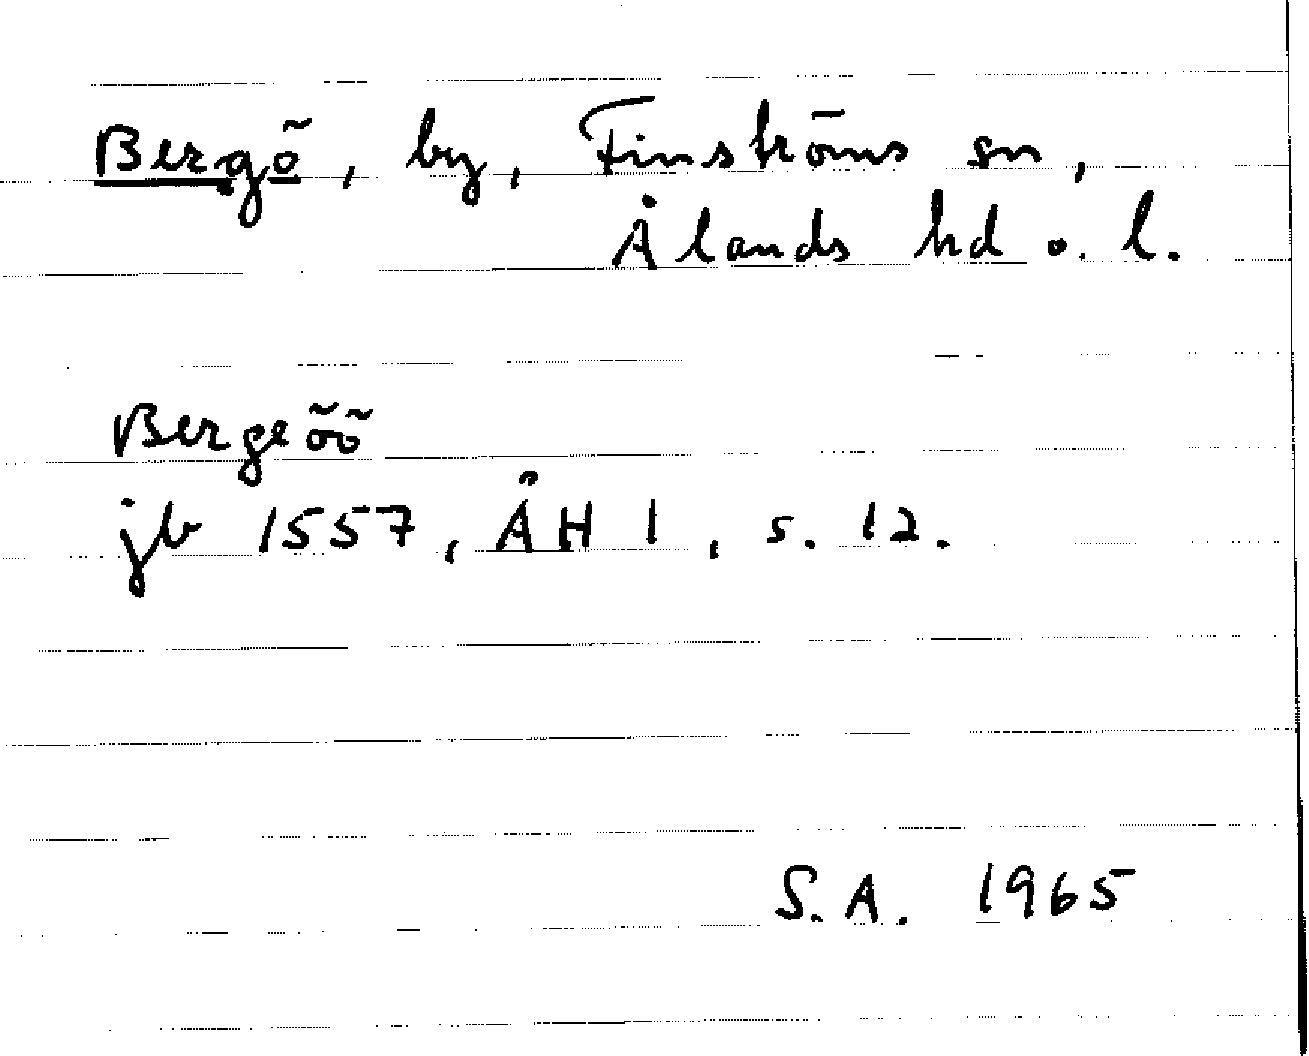 Bergö, by, Finströms sn,
Ålands hd o. l.
Bergeöö
jb 1557, ÅH 1, s. 12.
S.A. 1965